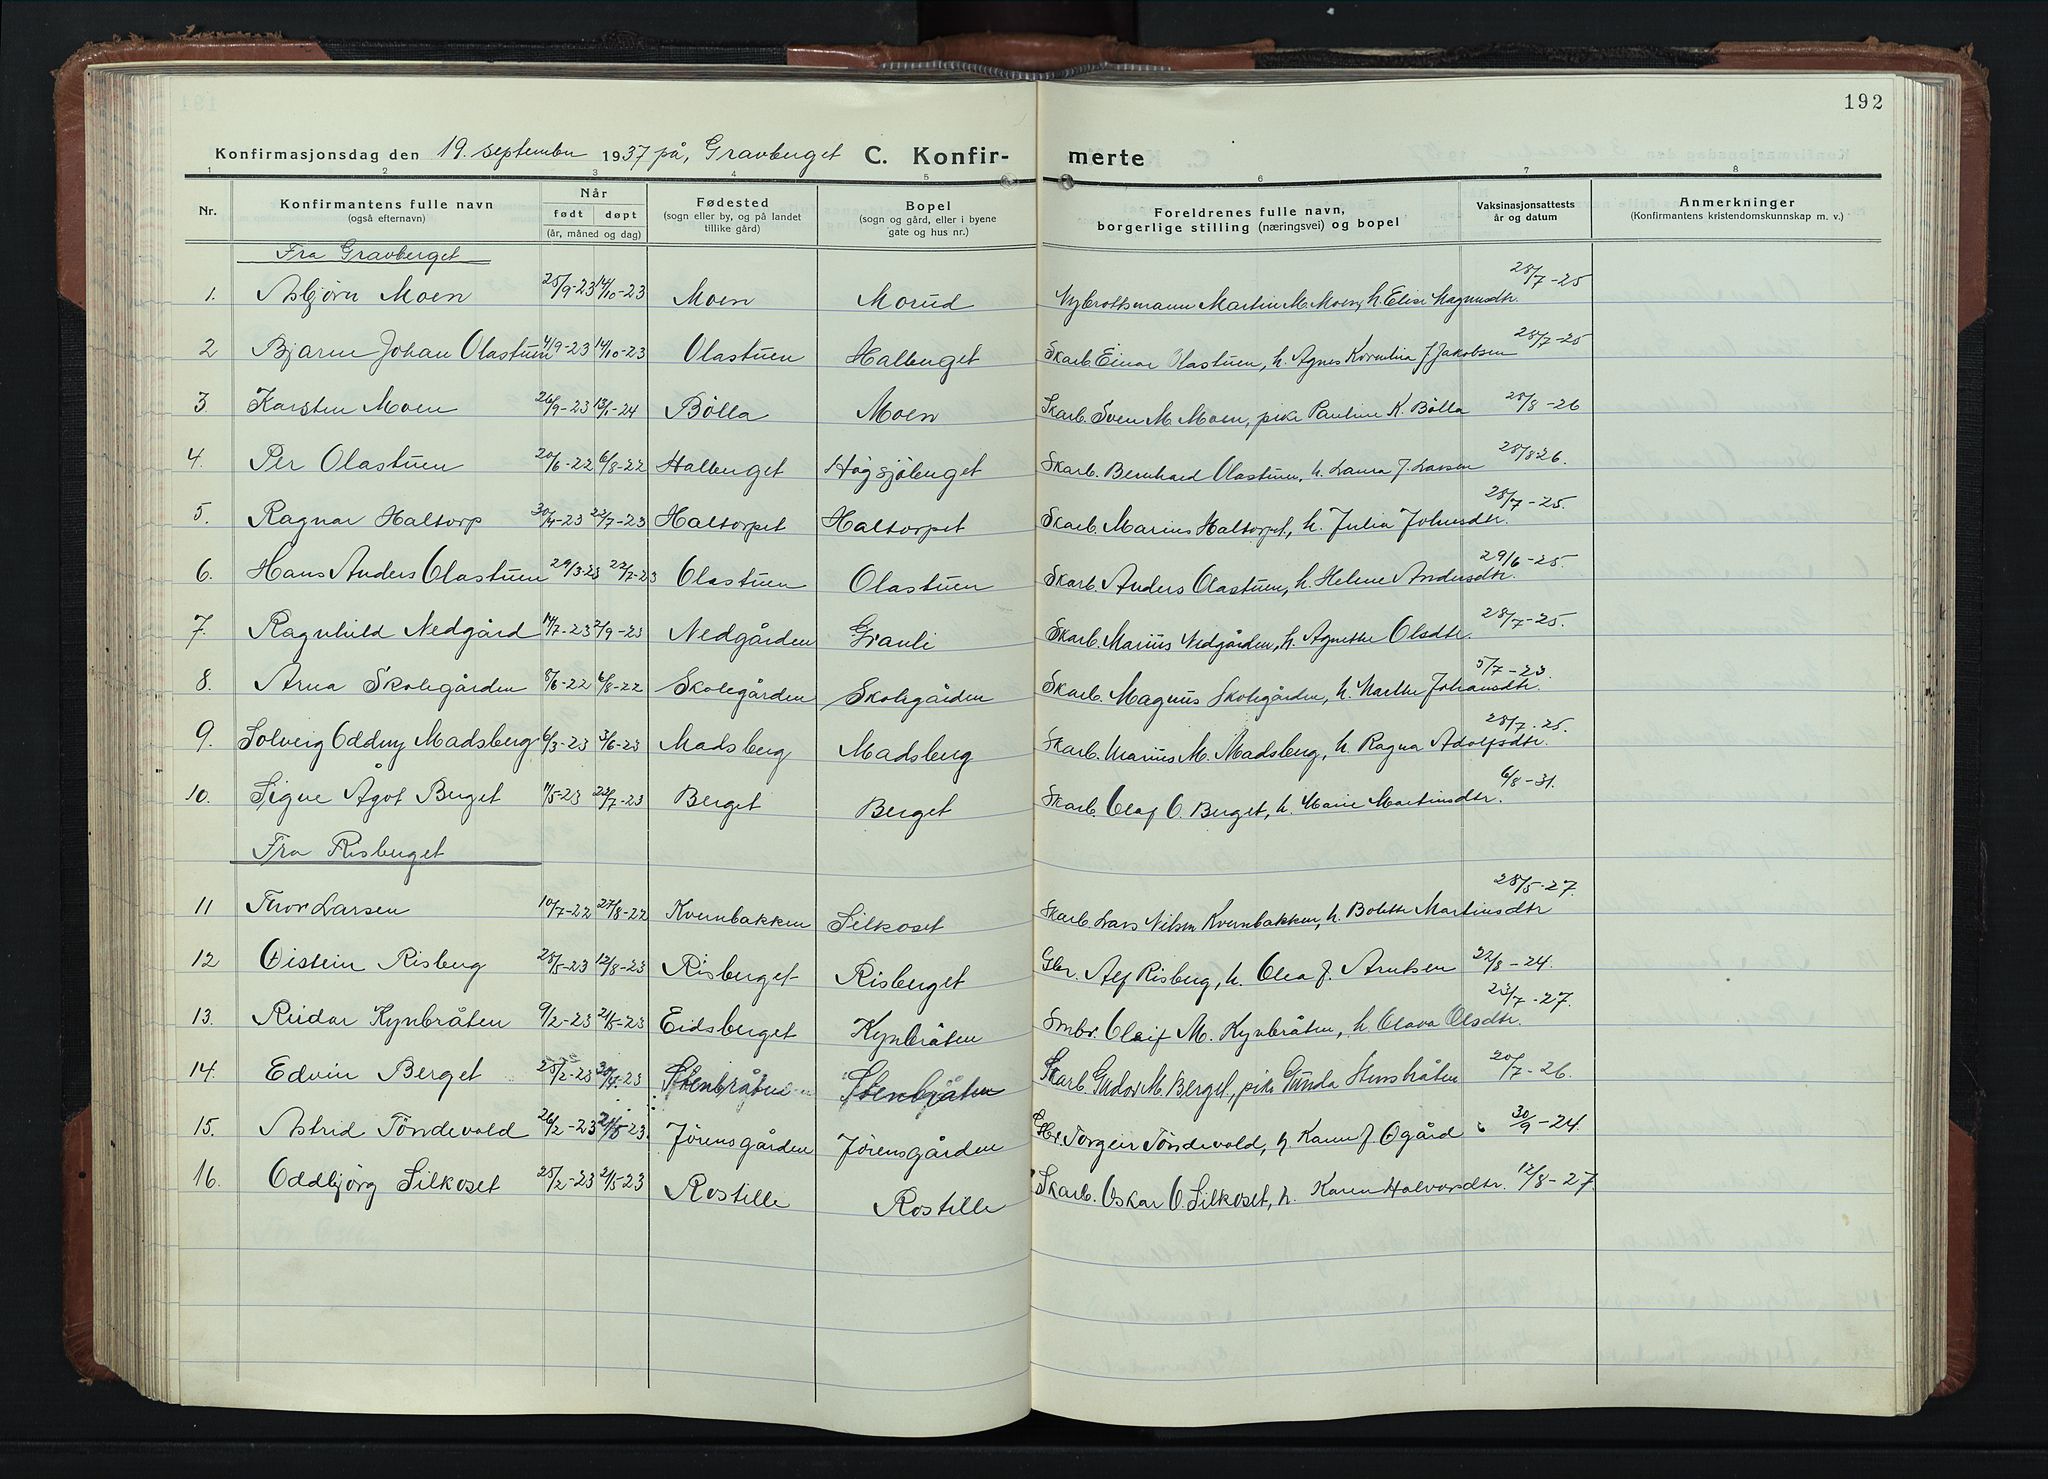 192
Konfirmasjonsdag den 19. september 1937 på, Gravberget C. Konfir- merte
1 2 3 4 5 6 7 8
Nr. Konfirmantens fulle navn (også efternavn) Når født døpt (år, måned og dag) Fødested (sogn eller by, og på landet tillike gård) Bopel (sogn og gård, eller i byene gate og hus nr.) Foreldrenes fulle navn, borgerlige stilling (næringsvei) og bopel Vaksinasjonsattests år og datum Anmerkninger (Konfirmantens kristendomskunnskap m. v.)
Fra Gravberget
1. Asbjørn Moen 25/9-23 14/10-23 Moen Morud Nybrottsmann Martin M. Moen, h. Elise Magnusdtr. 28/7-25
2 Bjarne Johan Olastuen 4/9-23 14/10-23 Olastuen Halberget Skarb. Einar Olastuen, h. Agnes Kornelia J Jakobsen 28/7-25
3. Karsten Moen 26/9-23 13/1-24 Bölla Moen Skarb. Sven M. Moen, pike Pauline K. Bölla 28/8-26
4. Per Olastuen 20/6-22 6/8-22 Halberget Högsjöberget Skarb. Bernhard Olastuen, h. Laura J. Larsen 28/8-26.
5. Ragnar Haltorp 30/4-23 22/7-23 Haltorpet Haltorpet Skarb. Marius Haltorpet, h. Julia Johnsdtr. 28/7-25.
6. Hans Anders Olastuen 29/3-23 22/7-23 Olastuen Olastuen Skarb. Anders Olastuen, h. Helene Andersdtr. 29/6-25.
7. Ragnhild Nedgård 17/7-23 2/9-23 Nedgården Granli Skarb. Marius Nedgården, h. Agnethe Olsdtr. 28/7-25.
8. Arna Skolegården 8/6-22 6/8-22 Skolegården Skolegården Skarb. Magnus Skolegården, h. Marthe Johansdtr. 5/7-23.
9. Solveig Oddny Madsberg 6/3-23 3/6-23 Madsberg Madsberg Skarb. Marius M. Madsberg, h. Ragna Adolfsdtr. 28/7-25.
10. Signe Ågot Berget 11/5-23 22/7-23 Berget Berget Skarb. Olaf O. Berget, h. Marie Martinsdtr. 6/8-31.
Fra Risberget
11 Thor Larsen 10/7-22 27/8-22 Kvernbakken Silkoset Skarb. Lars Nilsen Kvernbakken, h. Bolette Martinsdtr 28/5-27.
12 Øistein Risberg 28/5-23 12/8-23 Risberget Risberget Gbr. Alf Risberg, h. Olea J. Arntsen 22/8-24.
13. Reidar Kynbråten 9/2-23 21/5-23 Eidsberget Kynbråten Smbr. Oleif M. Kynbråten, h. Olava Olsdtr. 23/7-27.
14. Edvin Berget 25/2-23 30/4-23 Stenbråten Stenbråten Skarb. Gudov M. Berget, pike Gunda Stenbråten 20/7-26.
15. Astrid Töndevold 26/2-23 21/5-23. Jørensgården Jørensgården Gbr. Torgeir Töndevold, h. Karen J. Ogård 30/9-24.
16. Oddbjørg Silkoset 25/2-23 21/5-23 Rostille Rostille Skarb. Oskar O. Silkoset, h. Karen Halvorsdtr. 12/8-27.